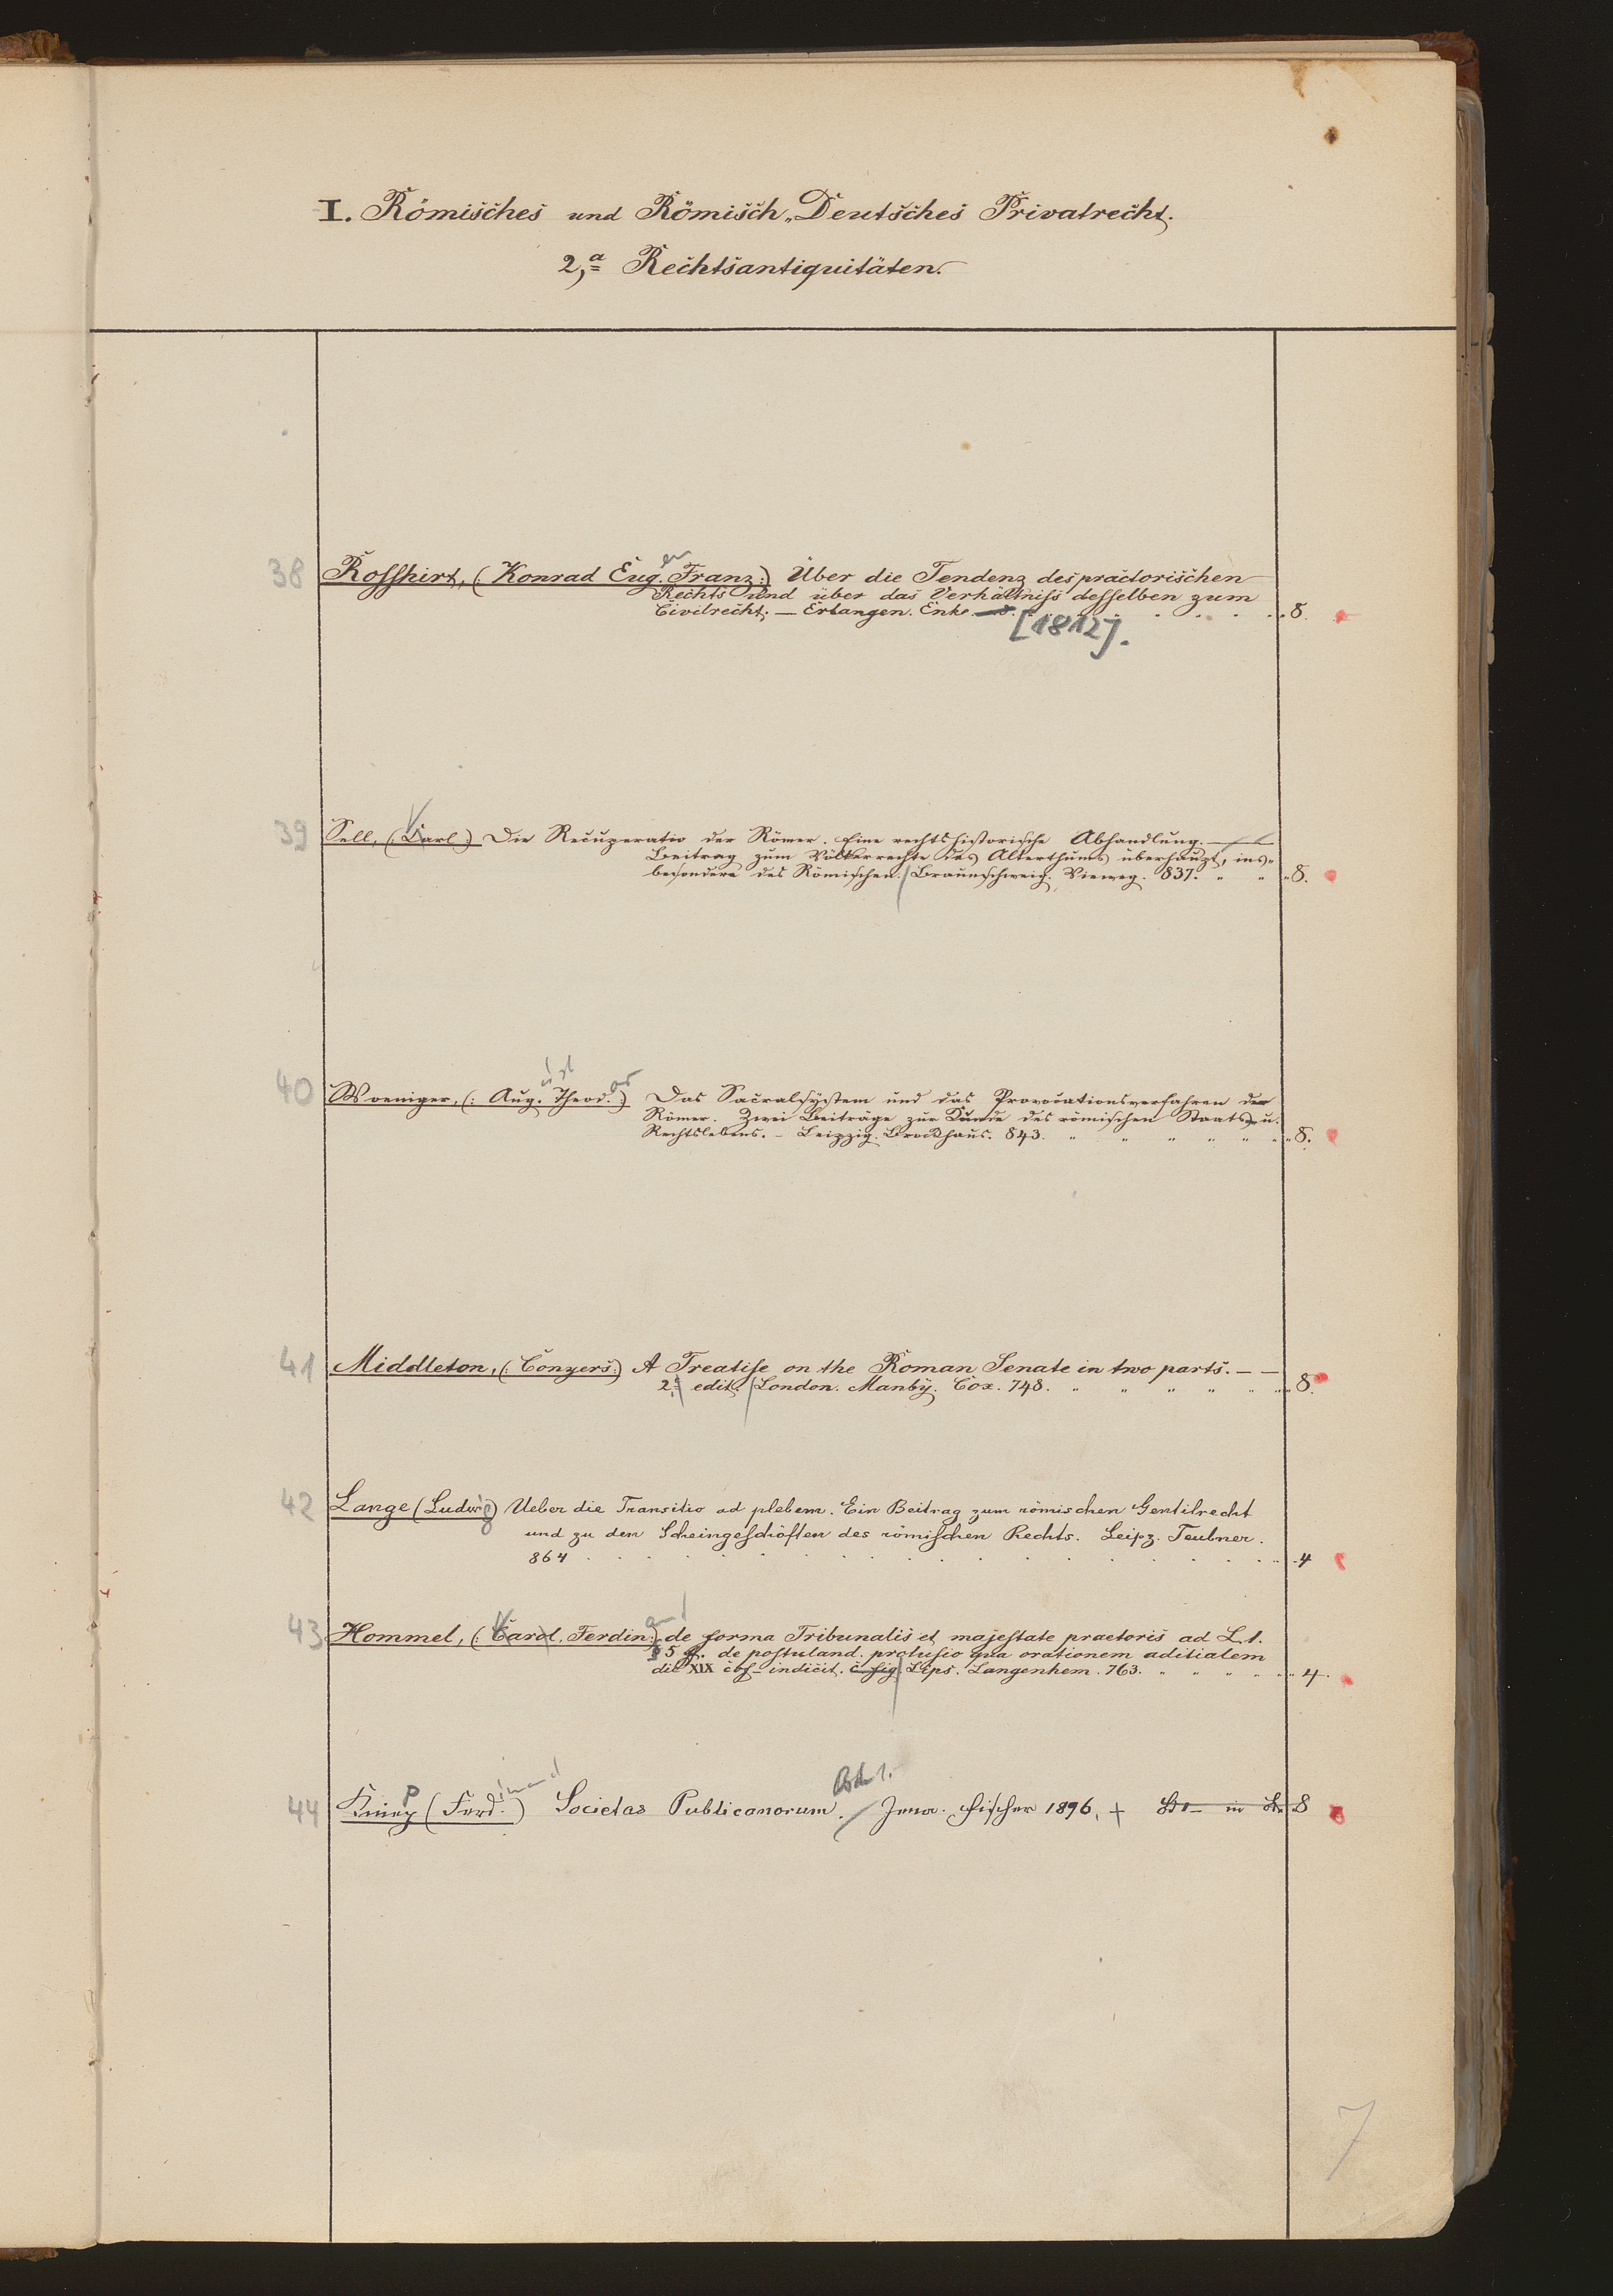 I. Römisches und Römisch-Deutsches Privatrecht.
2,a Rechtsantiquitäten.
38 Rosshirt, (: Konrad Eugen Franz:) Über die Tendenz des prätorischen
Rechts und über das Verhältniss desselben zum
Civilrecht. — Erlangen. Enke. . . . . . 8.
[1812].
39 Sell, (: Karl.) Die Recuperatio der Römer. Eine rechtshistorische Abhandlung. —
Beitrag zum Völkerrechte des Alterthums überhaupt, ins-
besondere des Römischen. Braunschweig. Vieweg. 837. " " " 8.
40 Woeniger, (: August Theodor.:) Das Sacralsystem und das Provocationsverfahren der
Römer. Zwei Beiträge zur Kunde des römischen Staats- u.
Rechtslebens. - Leipzig. Brockhaus. 843. " " " " " " 8.
41 Middleton, (: Conyers:) A Treatise on the Roman Senate in two parts. — —
2d edit. London. Manby. Cox. 748. " " " " " " 8.
42 Lange (Ludwig) Ueber die Transitio ad plebem. Ein Beitrag zum römischen Gentilrecht
und zu den Scheingeschäften des römischen Rechts. Leipz. Teubner.
864 . . . . . . 4
43 Hommel, (: Karl, Ferdinand:) de forma Tribunalis et majestate praetoris ad L. 1.
§ 5 ff. de postuland. prolusio qua orationem aditialem
die XIX indicit. Lips. Langenhem. 763. " " " " " 4.
44 Kniep (Ferdinand) Societas Publicanorum. Bd. 1. Jena. Fischer 1896. + 8
7